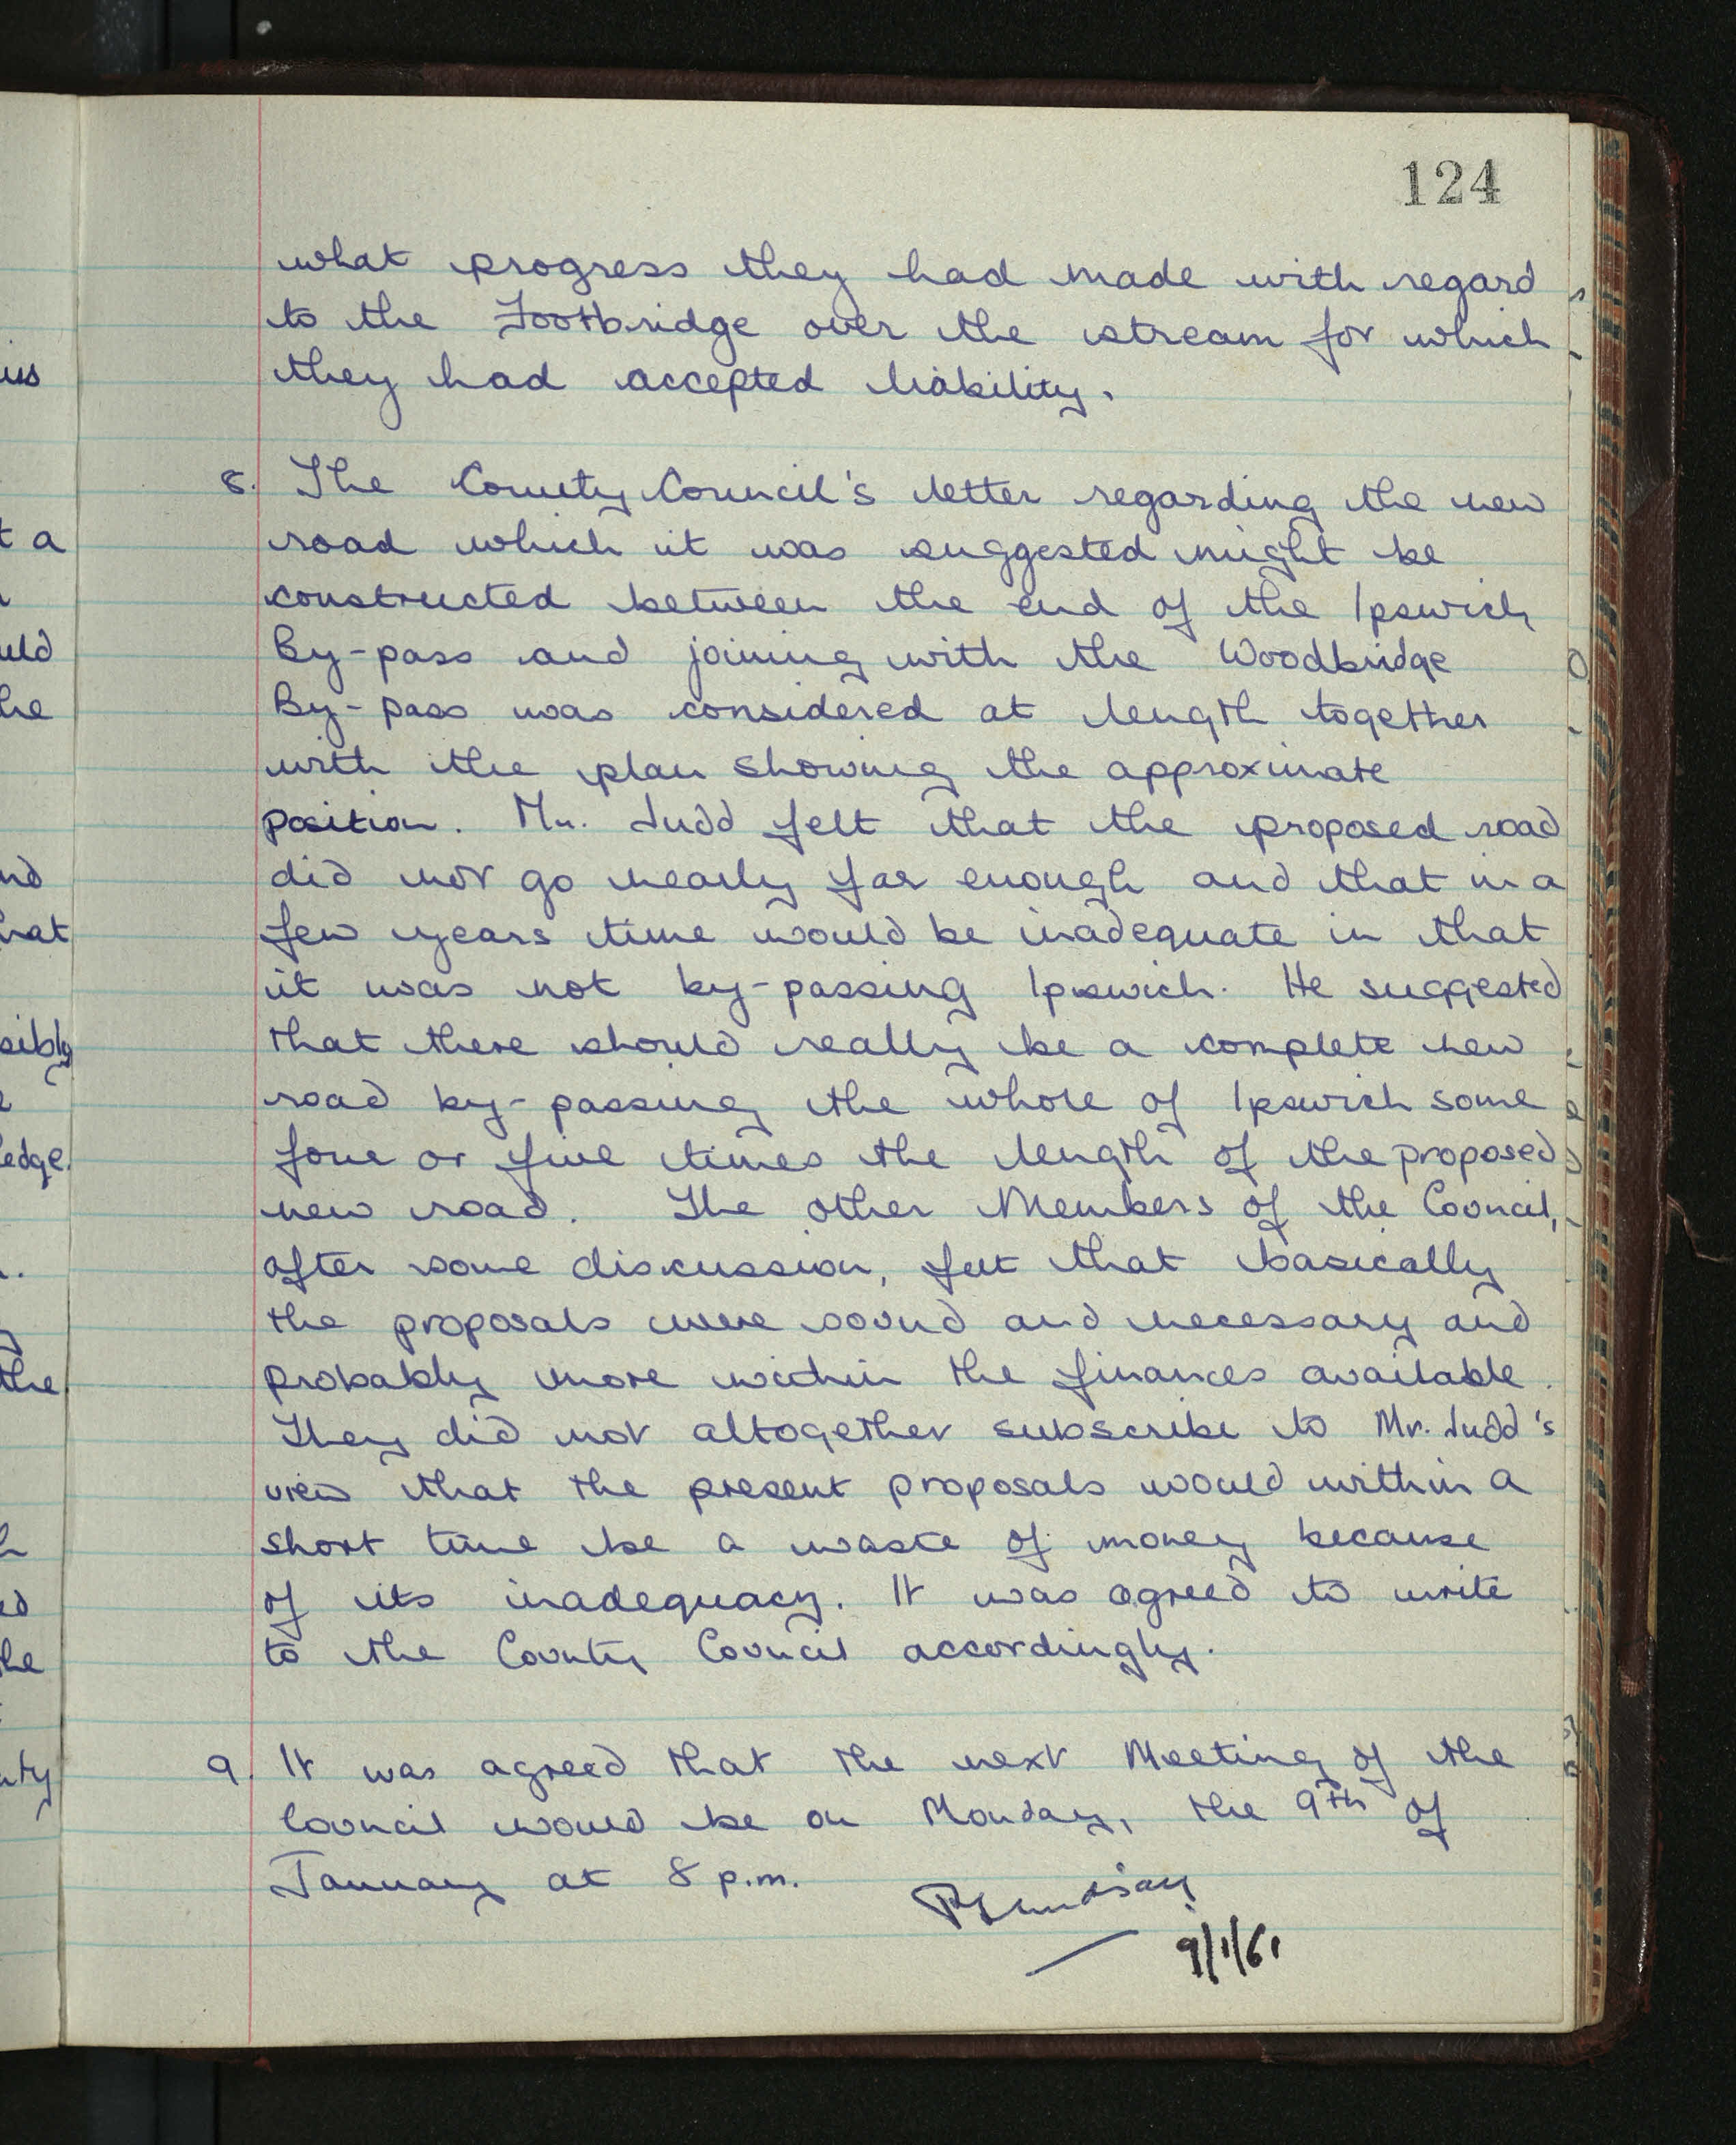 124
what progress they had made with regard
to the Footbridge over the stream for which
they had accepted liability.
8. The County Council's letter regarding the new
road which it was suggested might be
constructed between the end of the Ipswich
By-pass and joining with the Woodbridge
By-pass was considered at length together
with the plan showing the approximate
position. Mr. Judd felt that the proposed road
did not go nearly far enough and that in a
few years time would be inadequate in that
it was not by-passing Ipswich. He suggested
that there should really be a complete new
road by-passing the whole of Ipswich some
four or five times the length of the proposed
new road. The other Members of the Council,
after some discussion, felt that basically
the proposals were sound and necessary and
probably more within the finances available.
They did not altogether subscribe to Mr. Judd's
view that the present proposals would within a
short time be a waste of money because
of its inadequacy. It was agreed to write
to the County Council accordingly.
9. It was agreed that the next Meeting of the
Council would be on Monday, the 9th of
January at 8 p.m.
9/1/61